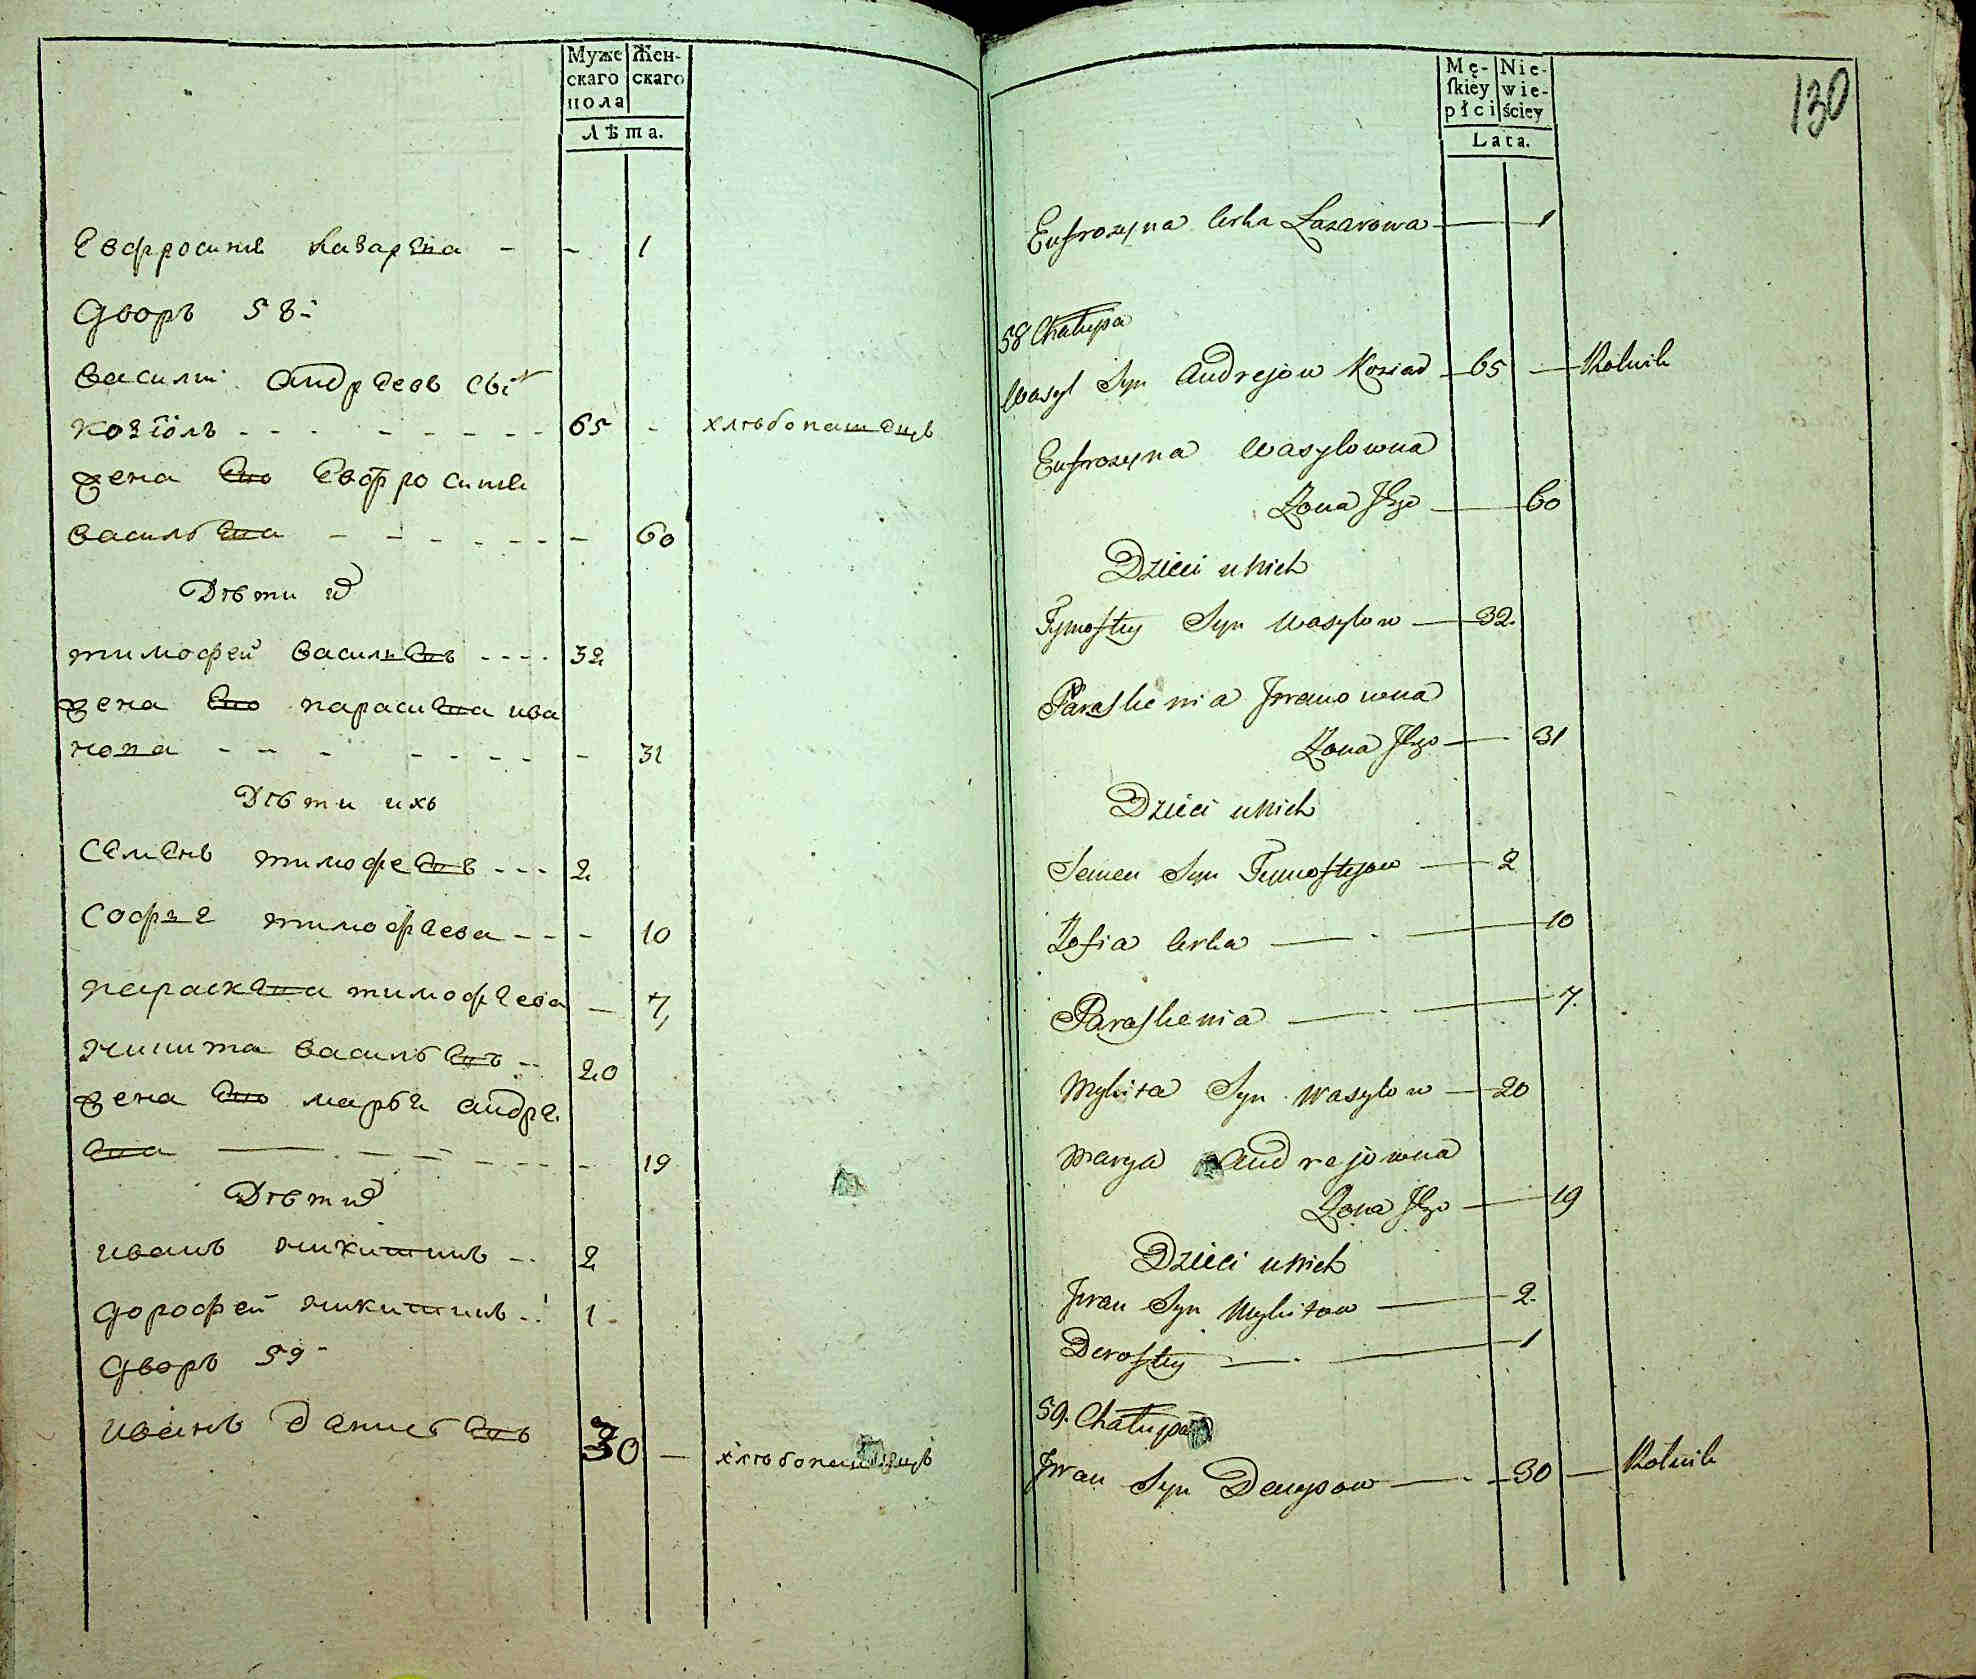 Муже Жен-
скаго скаго
пола
Лѣта.
Евфросинѣ Лазарева - - 1
Дворъ 58-
Василій Андреевъ сынъ
козіолъ - - - 65 - хлѣбопашецъ
жена Его Евфросинѣ
Васильева - - - 60
Дѣти их
тимофей Васильевъ - - - 32
жена Его парасшева ива
нова - - - 31
Дѣти ихъ
Семенъ тимофеевъ - - - 2
Софие тимофеева - - - 10
параскева тимофеева - 7
никита Васильевъ - - 20
жена Его марье андре
ева - - - 19
Дѣти их
иванъ никитинъ - - 2
дорофей никитинъ - - 1
Дворъ 59-
иванъ денисевъ 30 - хлѣбопашецъ
130
Mę- Nie-
ſkiey wie-
płci ściey
Lata.
Eufrozyna Cerka Lazarowa — 1
58 Chałupa
Wasyl Syn Andrejow Koziad — 65 — Rolnik
Eufrozyna Wasylowna
Zona Jego — 60
Dzieci u Nich
Tymoftey Syn Wasylow — 32.
Paraskenia Iwanowna
Zona Jego — 31
Dzieci u Nich
Semen Syn Tymofteyow — 2
Zofia Cerka — 10
Paraskenia — 7.
Mykita Syn Wasylow — 20
Marya Andrejowna
Zona Jego — 19
Dzieci u Nich
Iwan Syn Mykitow — 2.
Deroftey — 1
59. Chałupa
Iwan Syn Denysow — 30 — Rolnik